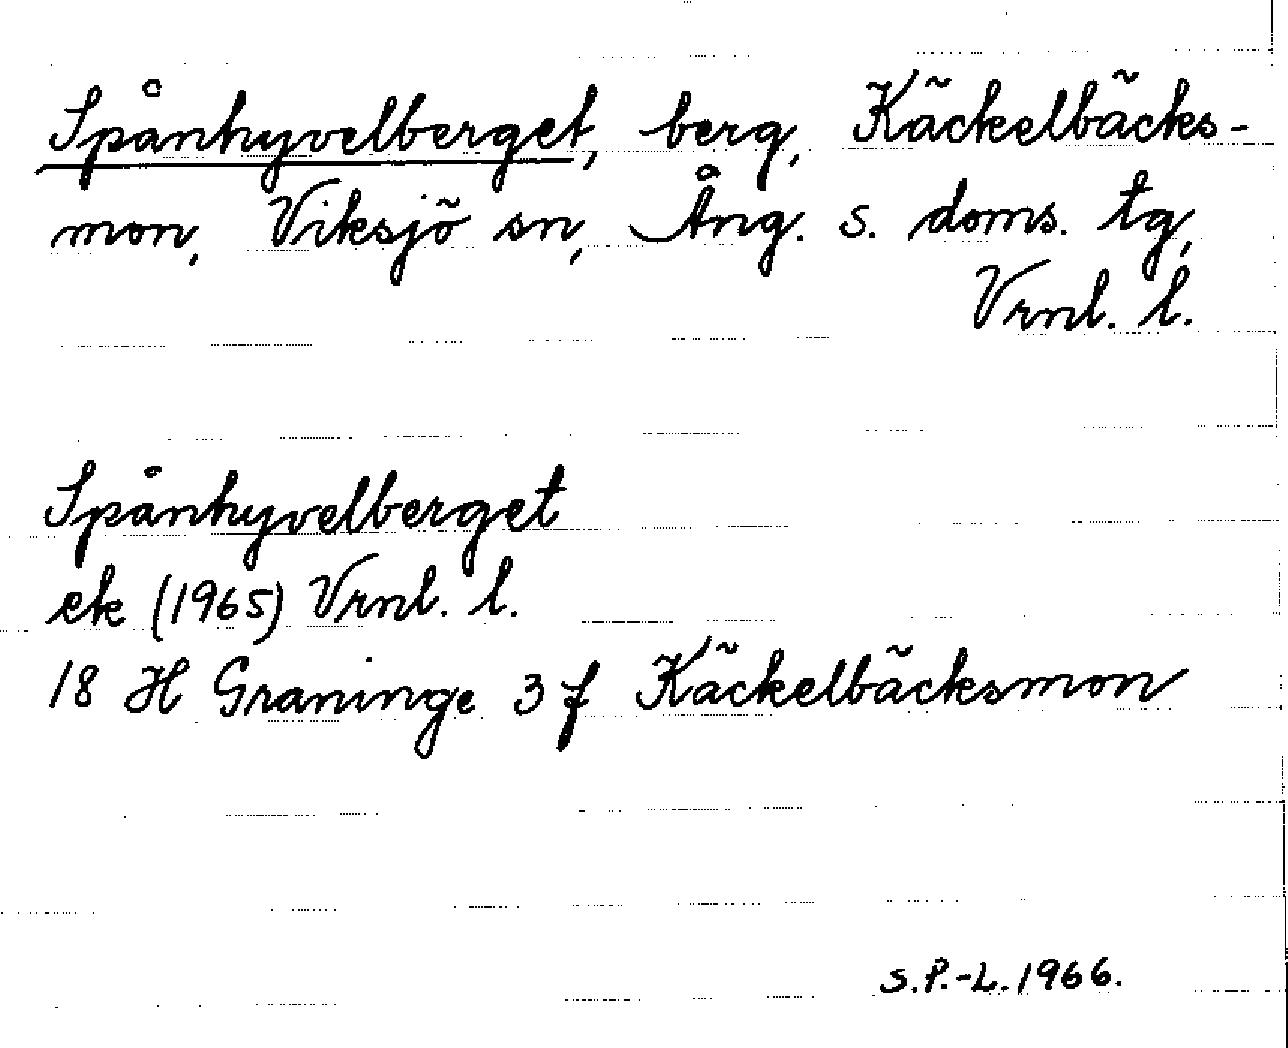 Spånhyvelberget, berg, Käckelbäcks-
mon, Viksjö sn, Ång. s. doms. tg,
Vrnl. l.
Spånhyvelberget
ek (1965) Vrnl. l.
18 H Graninge 3 f Käckelbäcksmon
S.P.-L. 1966.